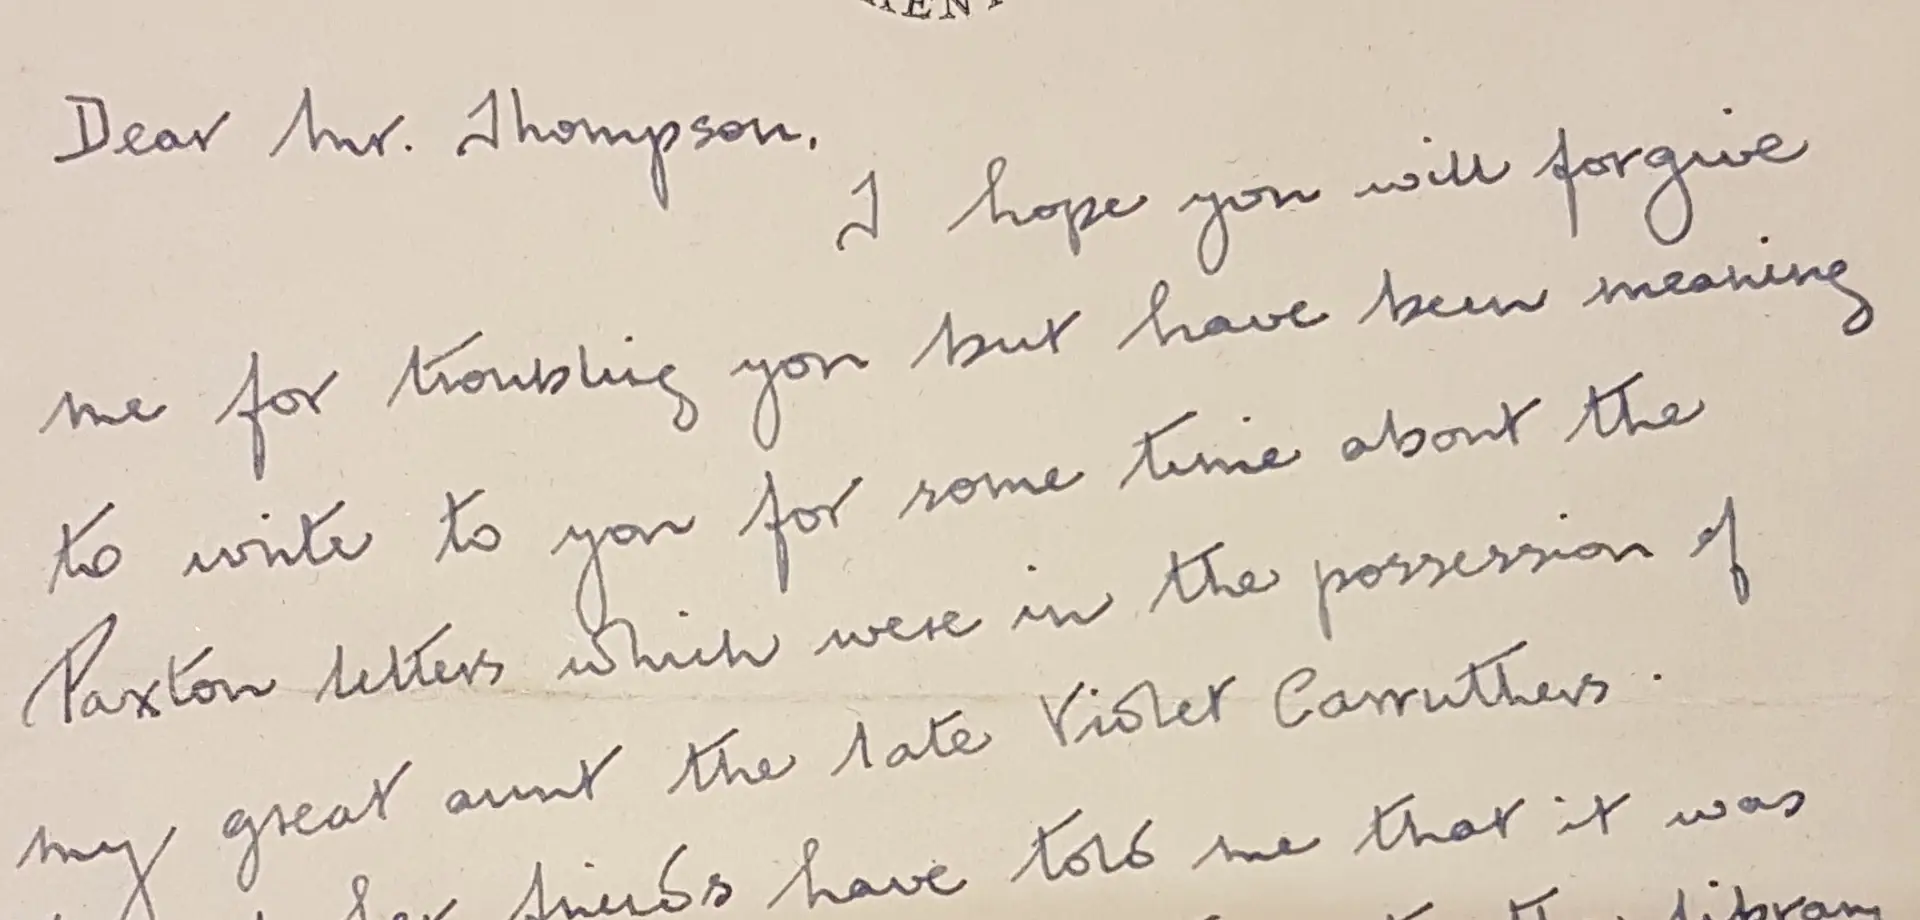 MENT
Dear Mr. Thompson,
I hope you will forgive
me for troubling you but have been meaning
to write to you for some time about the
Paxton letters which were in the possession of
my great aunt the late Violet Carruthers.
her friends have told me that it was
the library